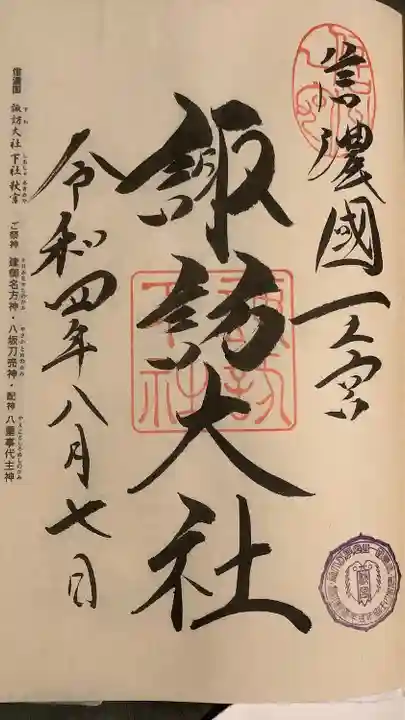 信濃國一之宮
諏訪大社
令和四年八月七日
信濃國 諏訪大社 下社 秋宮 ご祭神 建御名方神・八坂刀売神・配神 八重事代主神
諏訪
下社